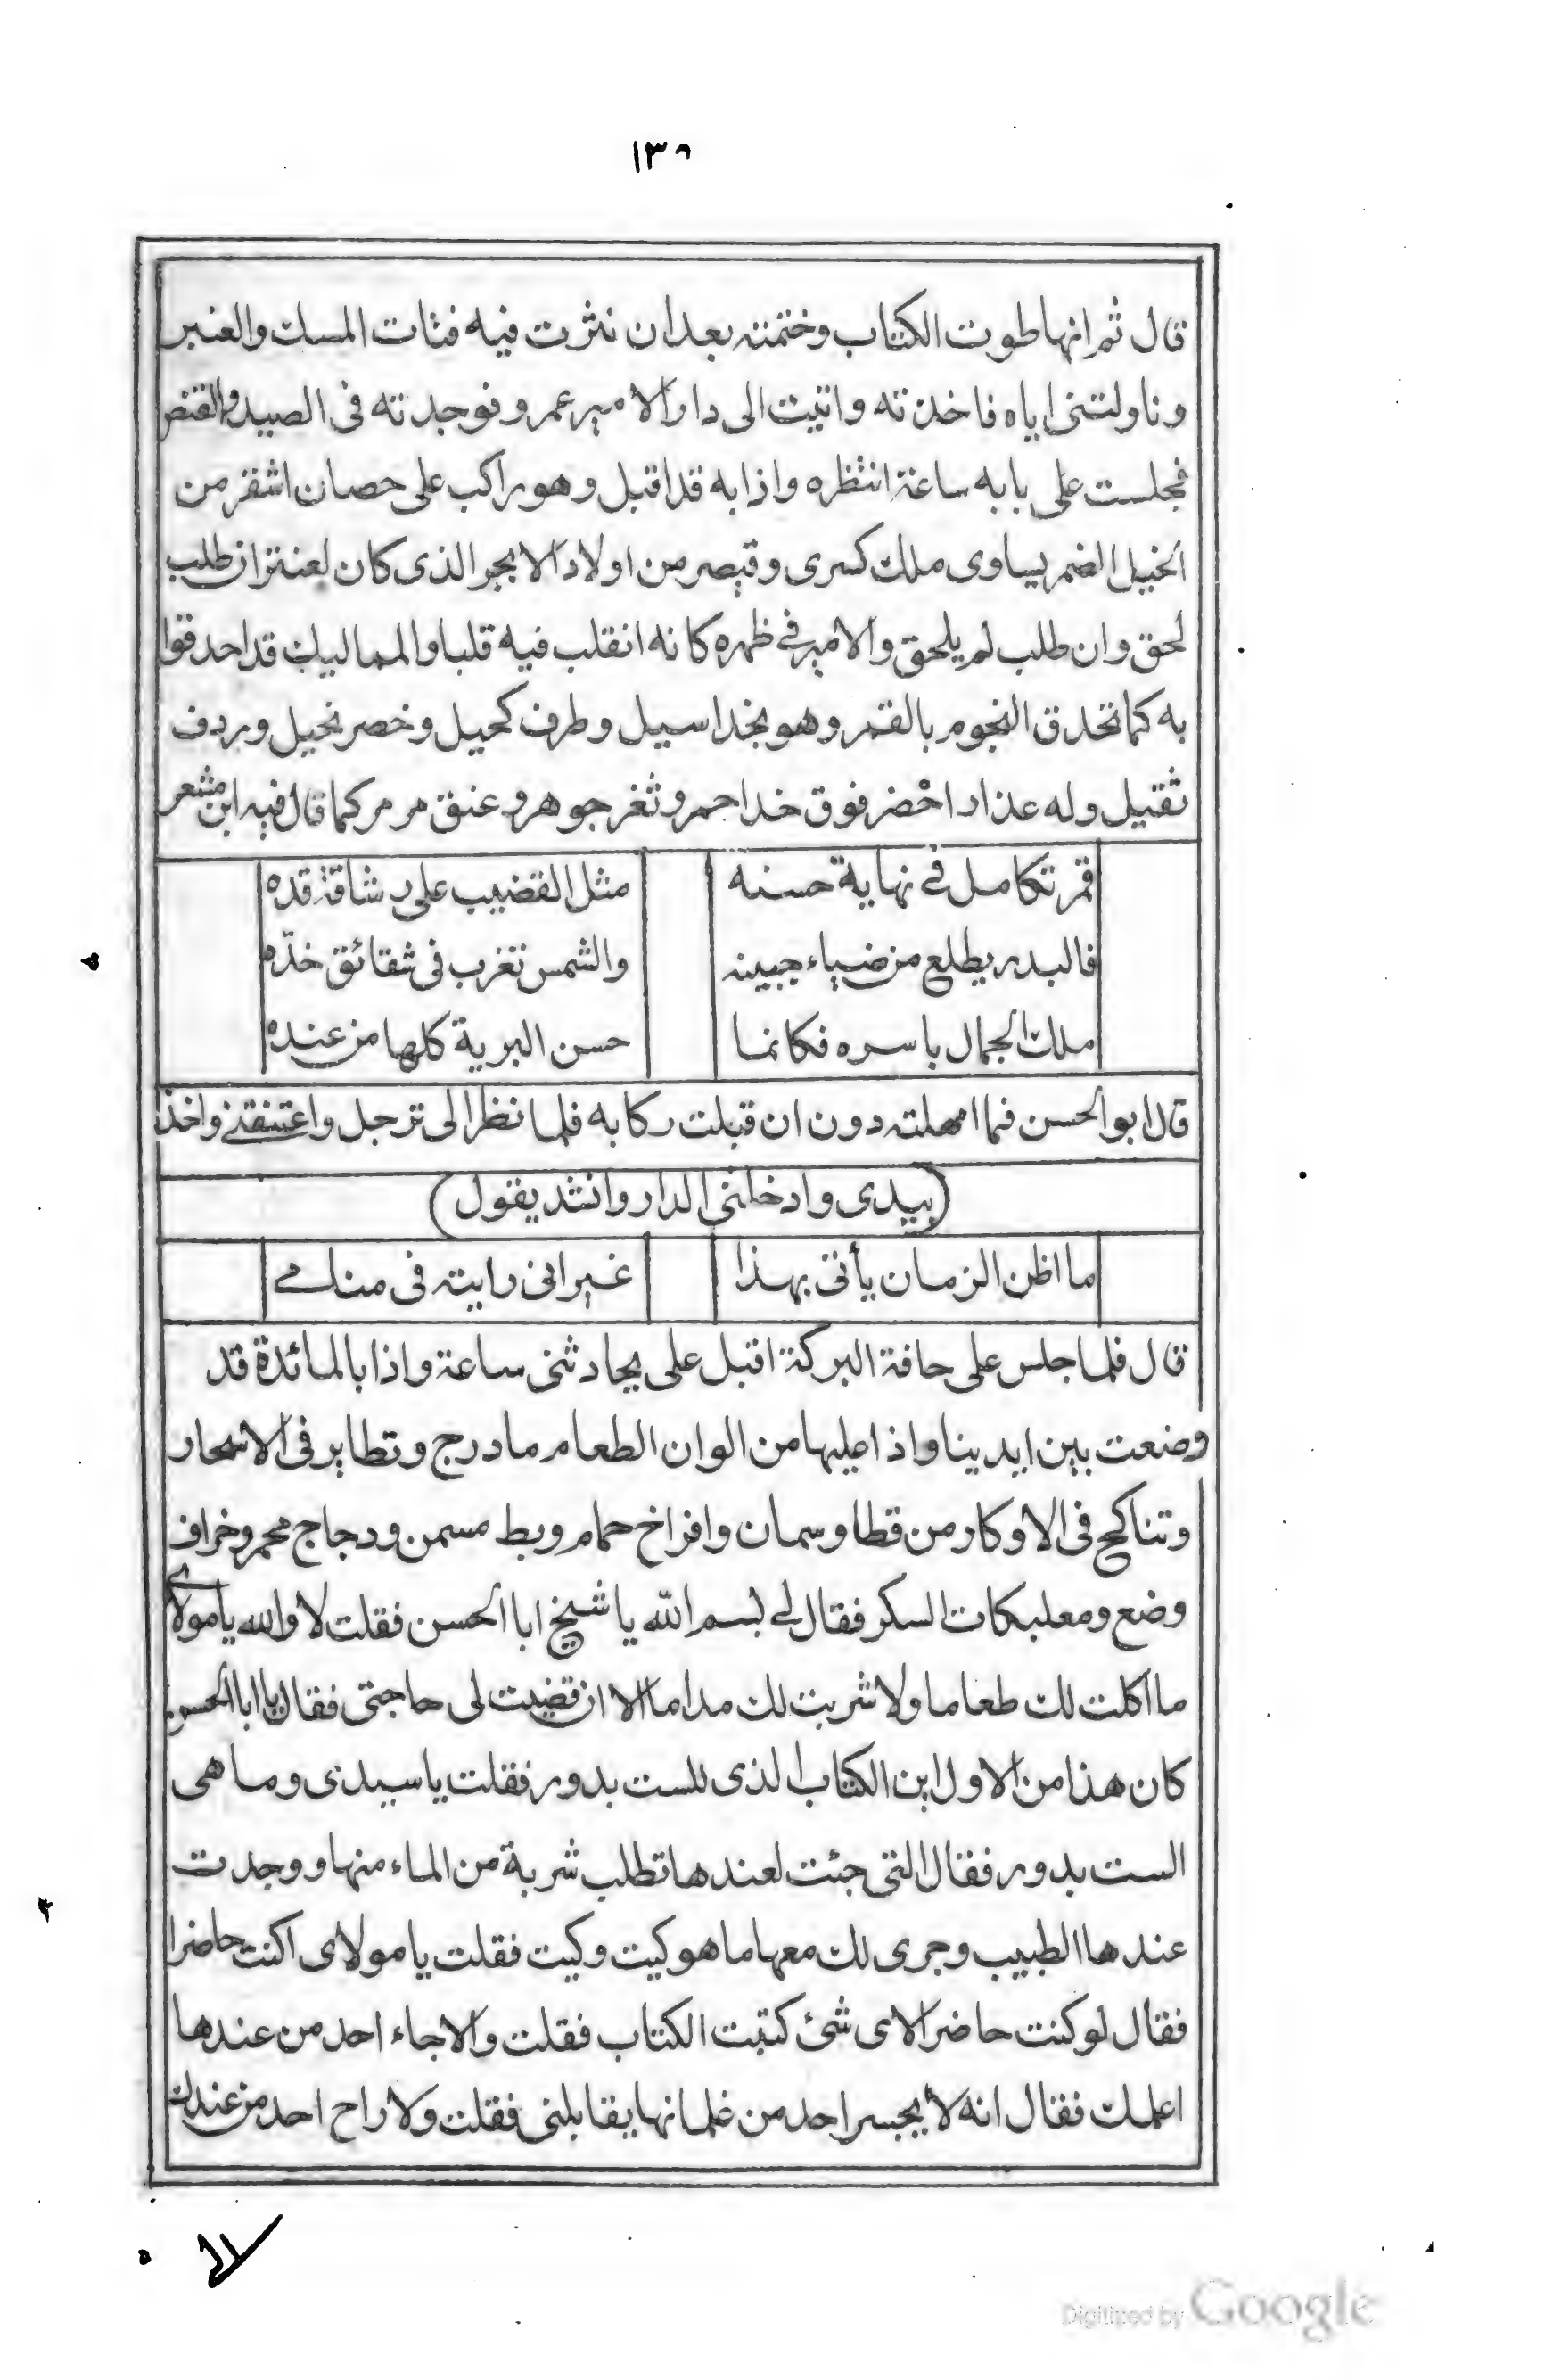 ١٣٥
قال ثم انها طوت الكتاب وختمته بعد ان نثرت فيه فتات المسك والعنبر
وناولتنى اياه فاخذته واتيت الى دار الامير عمرو فوجدته فى الصيد والقنص
فجلست على بابه ساعة انتظره واذا به قد اقبل وهو راكب على حصان اشقر من
الخيل الضمر يساوى ملك كسرى وقيصر من اولاد الابجر الذى كان لعنتر ان طلب
لحق وان طلب لم يلحق والامير فى ظهره كانه انقلب فيه قلبا والمماليك قد احدقوا
به كما تحدق النجوم بالقمر وهو بخد اسيل وطرف كحيل وخصر نحيل وردف
ثقيل وله عذار اخضر فوق خد احمر وثغر جوهر وعنق مرمر كما قال فيه ابن مشعر
قمر تكامل فى نهاية حسنه مثل القضيب على رشاقة قده
فالبدر يطلع من ضياء جبينه والشمس تغرب فى شقائق خدّه
ملك الجمال باسره فكانما حسن البرية كلها من عنده
قال ابو الحسن فما امهلته دون ان قبلت ركابه فلما نظر الى ترجل واعتنقنى واخذ
(بيدى وادخلنى الدار وانشد يقول)
ما اظن الزمان يأتى بهذا غير انى رايته فى منامى
قال فلما جلس على حافة البركة اقبل على يحادثنى ساعة واذا بالمائدة قد
وضعت بين ايدينا واذا عليها من الوان الطعام ما درج وتطاير فى الاسحار
وتناكح فى الاوكار من قطا وسمان وافراخ حمام وبط مسمن ودجاج محمر وخراف
وضع ومعلبكات السكر فقال لى بسم الله يا شيخ ابا الحسن فقلت لا والله يا مولاى
ما اكلت لك طعاما ولا شربت لك مداما الا ان قضيت لى حاجتى فقال يا ابا الحسن
كان هذا من الاول اين الكتاب الذى للست بدور فقلت يا سيدى وما هى
الست بدور فقال التى جئت لعندها تطلب شربة من الماء منها ووجدت
عندها الطبيب وجرى لك معها ما هو كيت وكيت فقلت يا مولاى اكنت حاضرا
فقال لو كنت حاضرا لاى شئ كتبت الكتاب فقلت والاجاء احد من عندها
اعلمك فقال انه لا يجسر احد من غلمانها يقابلنى فقلت ولا راح احد من عندك
Digitized by Google